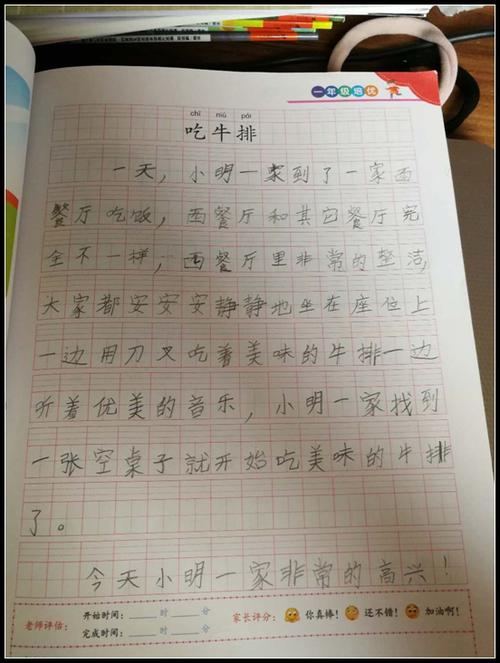 一年级培优
chī niú pái
吃牛排
一天，小明一家到了一家西
餐厅吃饭，西餐厅和其它餐厅完
全不一样，西餐厅里非常的整洁，
大家都安安安静静地坐在座位上
一边用刀叉吃着美味的牛排一边
听着优美的音乐，小明一家找到
一张空桌子就开始吃美味的牛排
了。
今天小明一家非常的高兴！
老师评估： 开始时间：____时____分 家长评分： 你真棒！ 还不错！ 加油啊！
完成时间：____时____分